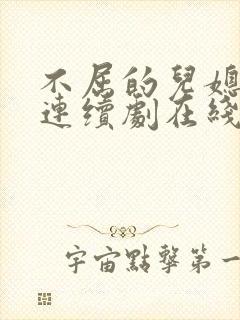 不屈的兒媳
連續劇在綫
宇宙點擊第一